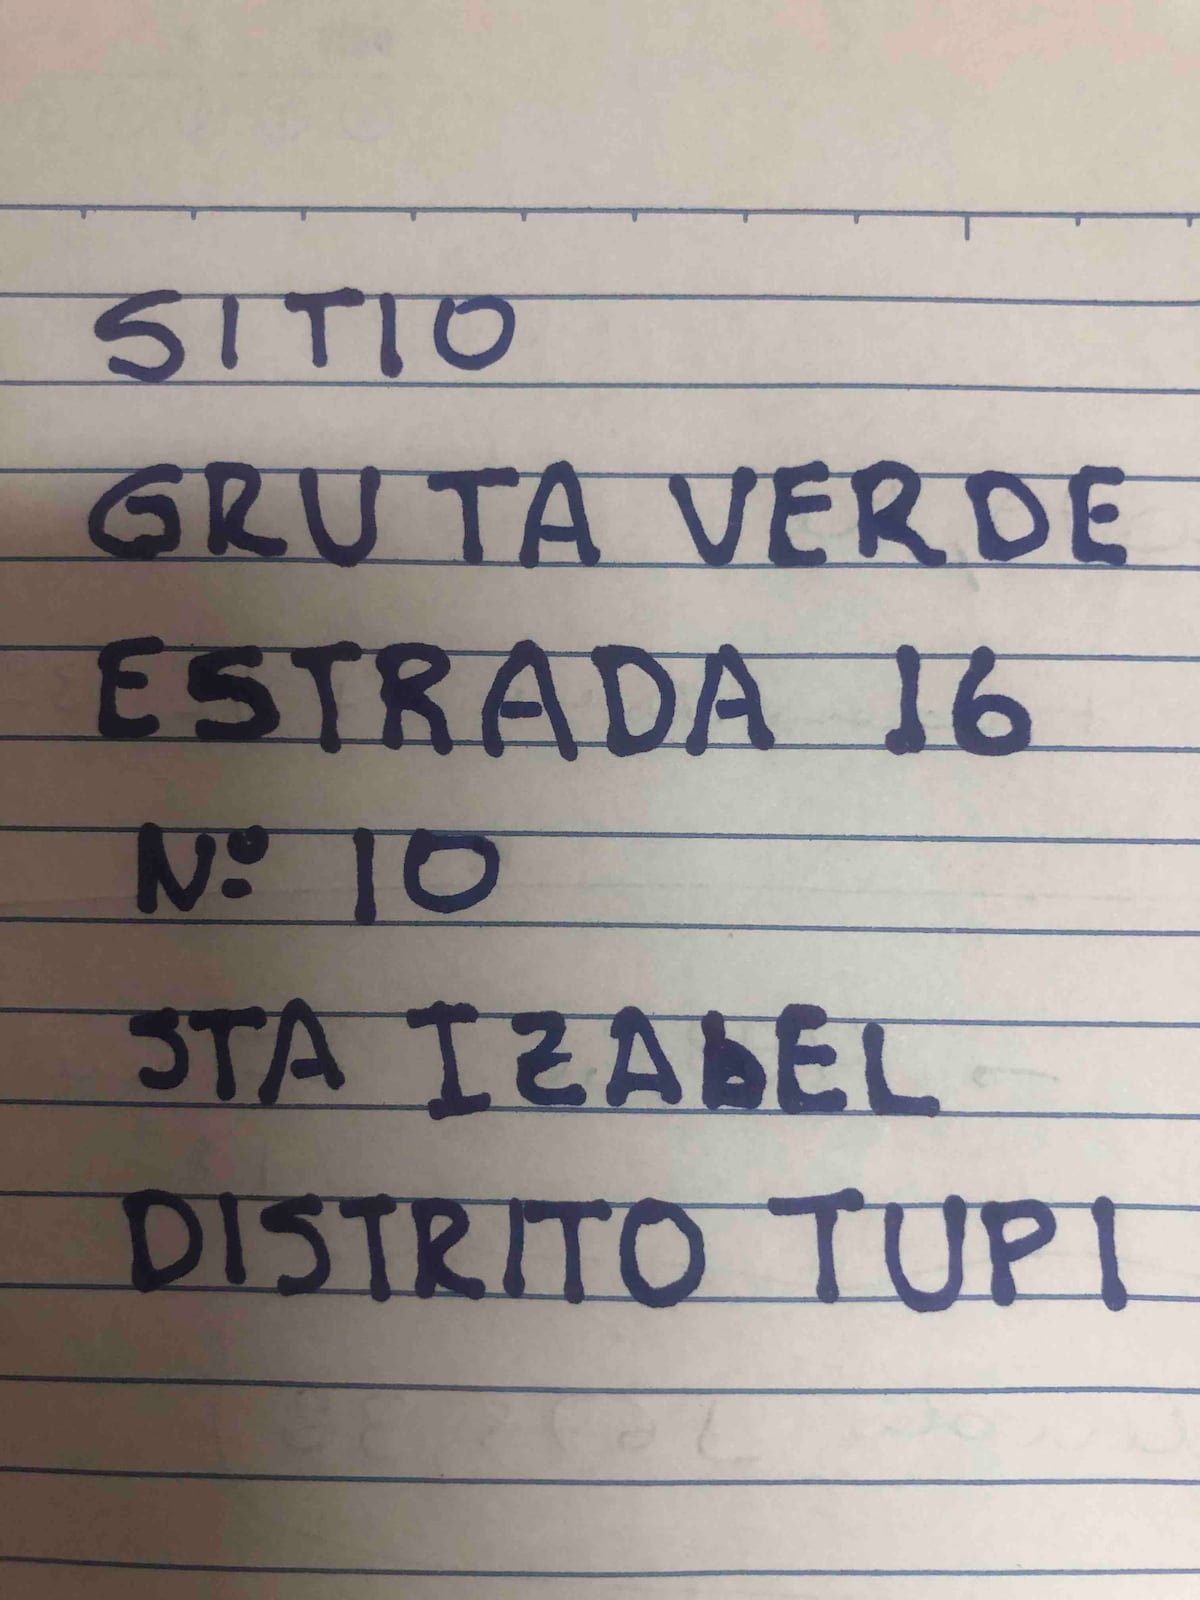 SITIO
GRUTA VERDE
ESTRADA 16
Nº 10
STA IZAbEL
DISTRITO TUPI